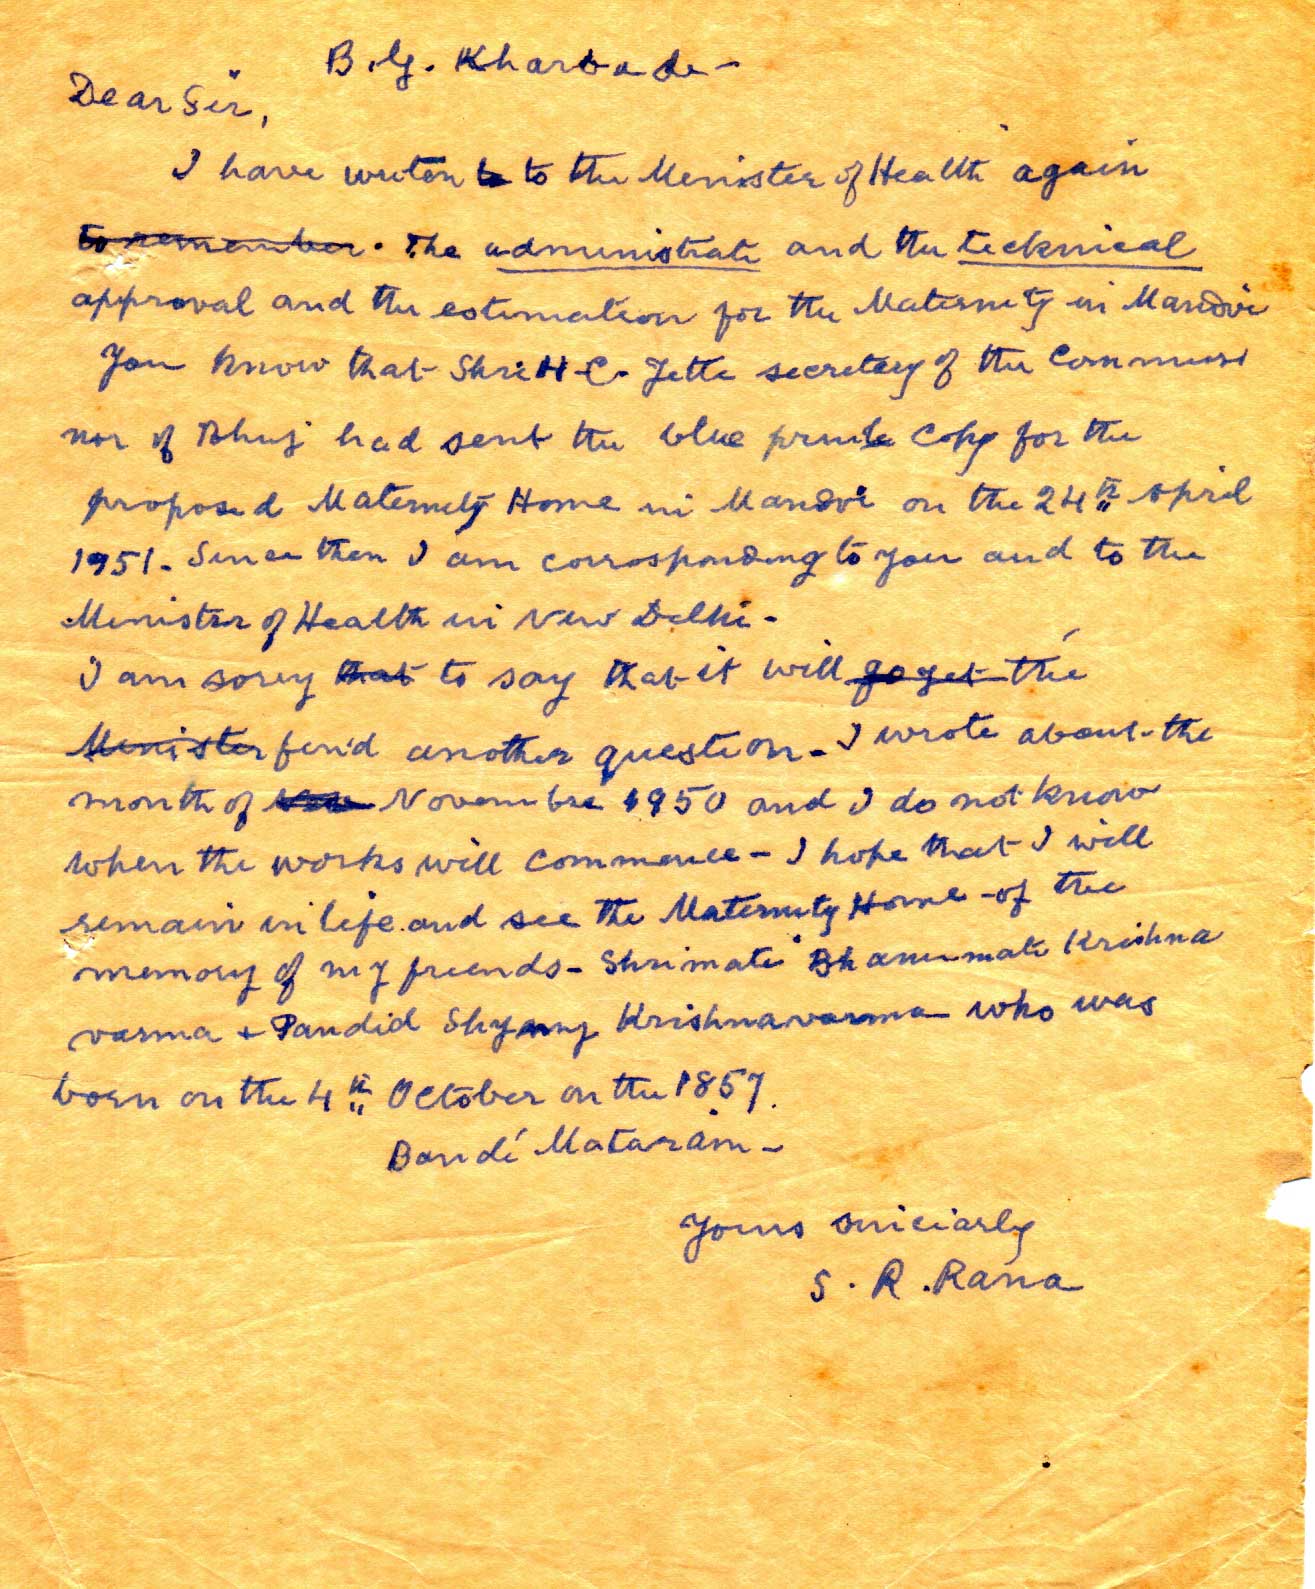 B. G. Kharbade -
Dear Sir,
I have writen to to the Menister of Health again
to remember. The administrate and the tecknical
approval and the estemation for the Maternity in Mandvi
You know that Shri H. C. Jette secretery of the Commissi
nor of Bhuj had sent the blue print Copy for the
proposed Maternity Home in Mandvi on the 24th April
1951. Since then I am corrosponding to you and to the
Menister of Health in New Delhi -
I am sorry that to say that it will go get the
Menister find another question - I wrote about the
month of Novembre 1950 and I do not know
when the works will commence - I hope that I will
remain in life and see the Maternity Home - of the
memory of my friends - Shrimati Bhanumati Krishna
varma + Pandid Shyamy Krishnavarma who was
born on the 4th October on the 1857.
Bandé Mataram -
Yours sinciarly
S. R. Rana